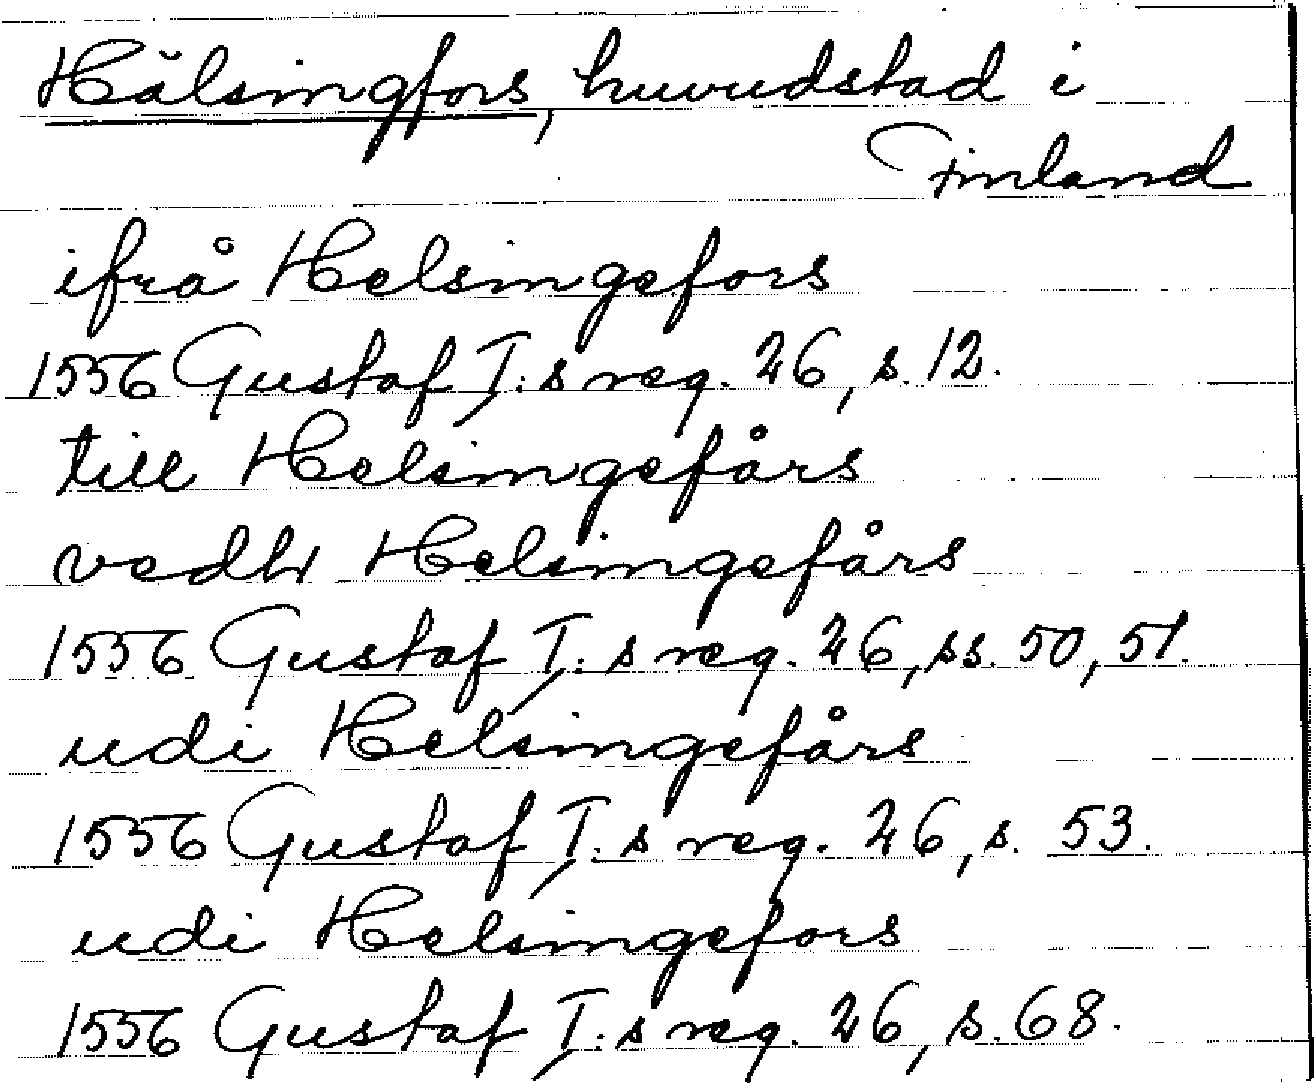 Hälsingfors, huvudstad i
Finland
ifrå Helsingefors
1556 Gustaf I:s reg. 26, s. 12.
till Helsingefårs
vedh Helsingefårs
1556 Gustaf I:s reg. 26, ss. 50, 51.
udi Helsingefårs
1556 Gustaf I:s reg. 26, s. 53.
udi Helsingefors
1556 Gustaf I:s reg. 26, s. 68.